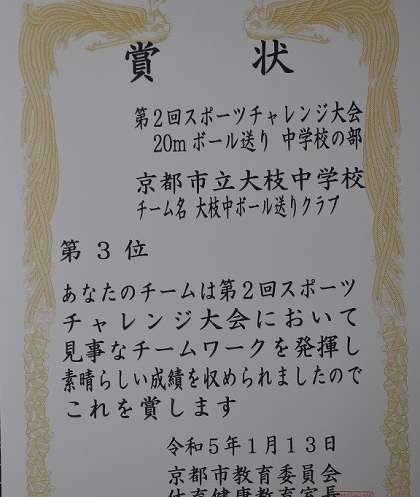 賞 状
第2回スポーツチャレンジ大会
20mボール送り 中学校の部
京都市立大枝中学校
チーム名 大枝中ボール送りクラブ
第3位
あなたのチームは第2回スポーツ
チャレンジ大会において
見事なチームワークを発揮し
素晴らしい成績を収められましたので
これを賞します
令和5年1月13日
京都市教育委員会
体育健康教育室長